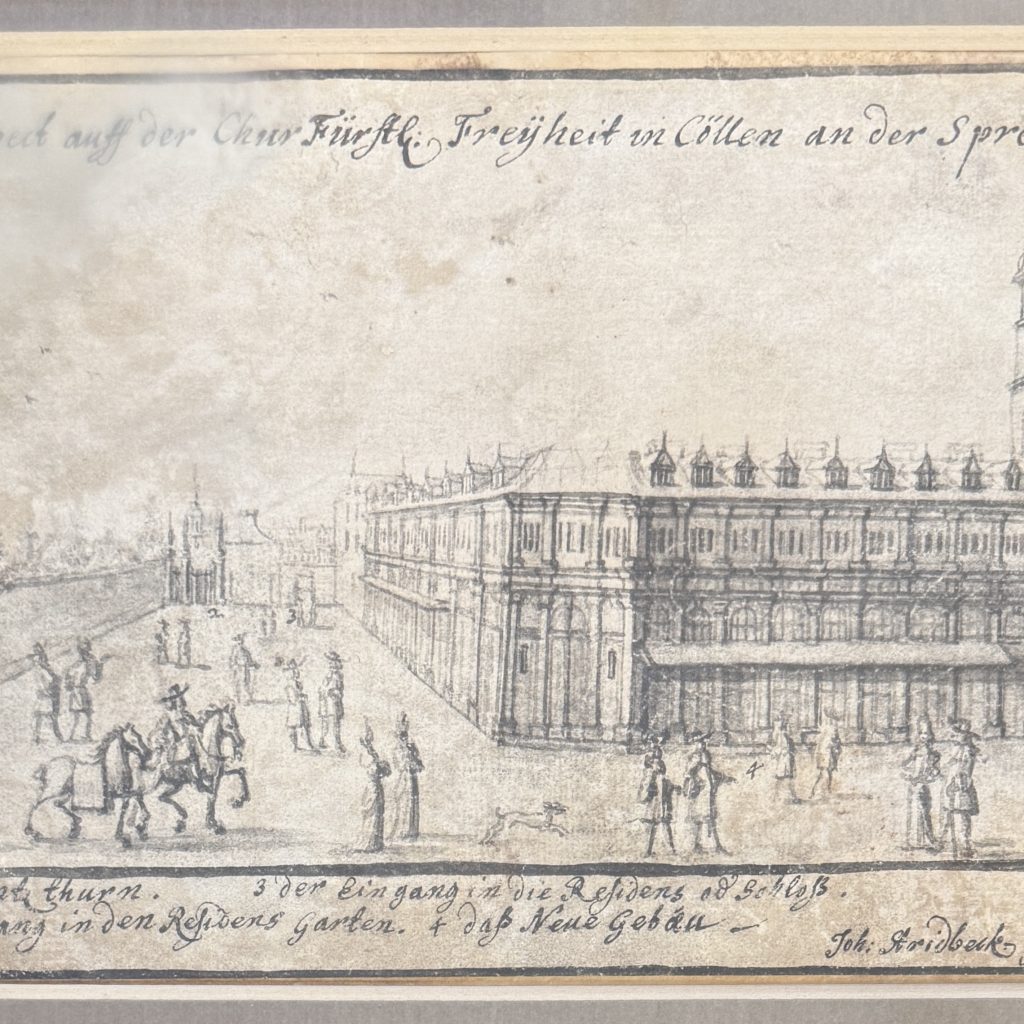 pect auff der ChurFürstl: Freÿheit in Cöllen an der Spre
2
3
4
ntz thurn. 3 der Eingang in die Residens od Schloß.
ang in den Residens Garten. 4 daß Neue Gebäu
Joh: Stridbeck